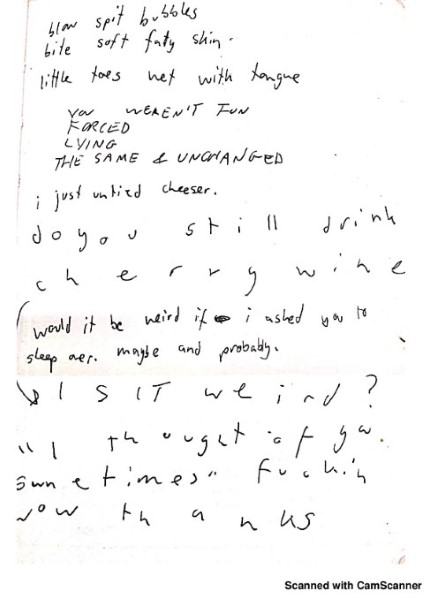 blow spit bubbles
bite soft faty skin.
little toes wet with tongue
YOU WEREN'T FUN
FORCED
LYING
THE SAME & UNCHANGED
i just untied cheeser.
do you still drink
cherry wine
would it be weird if i asked you to
sleep over. maybe and probably.
IS IT weird?
"I thought of you
sometimes" fuckin
wow thanks
Scanned with CamScanner